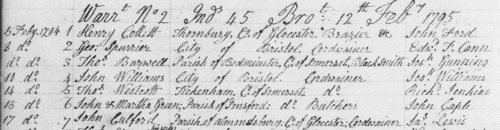 Warrt. No 2 Ind 45 Brot. 12th Feby 1795
5 Feby. 1794 1 Henry Collett Thornbury, Co. of Glocester Brazier &c John Ford
8 do. 2 Geo. Spurrier City of Bristol Cordwainer Edwd. T. Cann
do do. 3 Thos. Barwell Parish of Bedminster, Co. of Somerset, Black Smith Jos. Gunning
10 do. 4 John Williams City of Bristol Cordwainer Jos. Williams
14 do 5 Thos. Westcott Tickenham, Co. of Somerset do Richd. Jenkins
15 do. 6 John & Martha Green, Parish of Pensford; do Butchers John Cafle
17 do, 7 John Culford, Parish of Almondsbury Co. of Glocester, Cordwainer Jas. Lewis